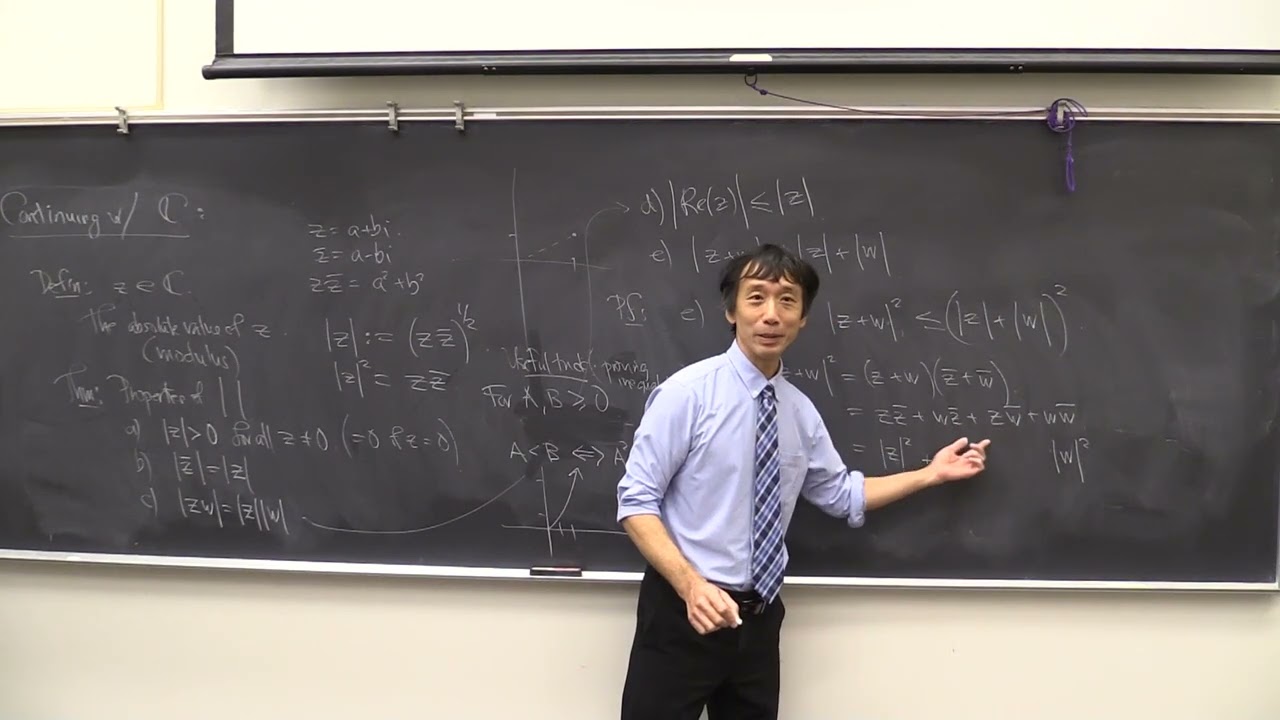 Continuing w/ ℂ:
Defn: z ∈ ℂ.
The absolute value of z
(modulus)
z = a+bi
z̅ = a-bi
zz̅ = a²+b²
|z| := (zz̅)^{1/2}
|z|² = zz̅
Thm: Properties of | |
a) |z|>0 for all z≠0 (=0 if z=0)
b) |z̅|=|z|
c) |zw|=|z||w|
d) |Re(z)| ≤ |z|
e) |z+ |z|+|w|
Useful trick: proving
For A, B ≥ 0
A<B ⟺ A²
Pf: e) |z+w|² ≤ (|z|+|w|)².
z+w|² = (z+w)(z̅+w̅).
= zz̅ + wz̅ + zw̅ + ww̅
= |z|² + |w|²